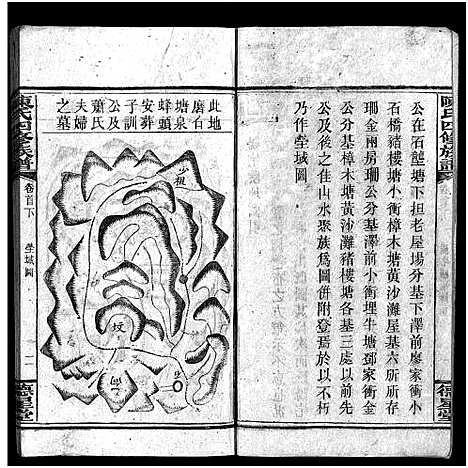 陳氏四修族譜
公在石䃥塘下担老屋場分基下澤前廖家衝小
石橋豬樓塘小衡樟木塘黃沙灘屋基六所所存
珊金兩房珊公分基澤前小衝埋牛塘鄧家衝金
公分基樟木塘黃沙灘豬樓塘各基三處以前先
公及後之佳山水聚族爲圖併附登焉於以不朽
乃作塋域圖
德星堂
此地磨石
塘泉蜂頭
安葬子訓
公及蕭氏
夫婦之墓
少祖
坟
陳氏四修族譜
卷首下
塋域圖
一
德星堂